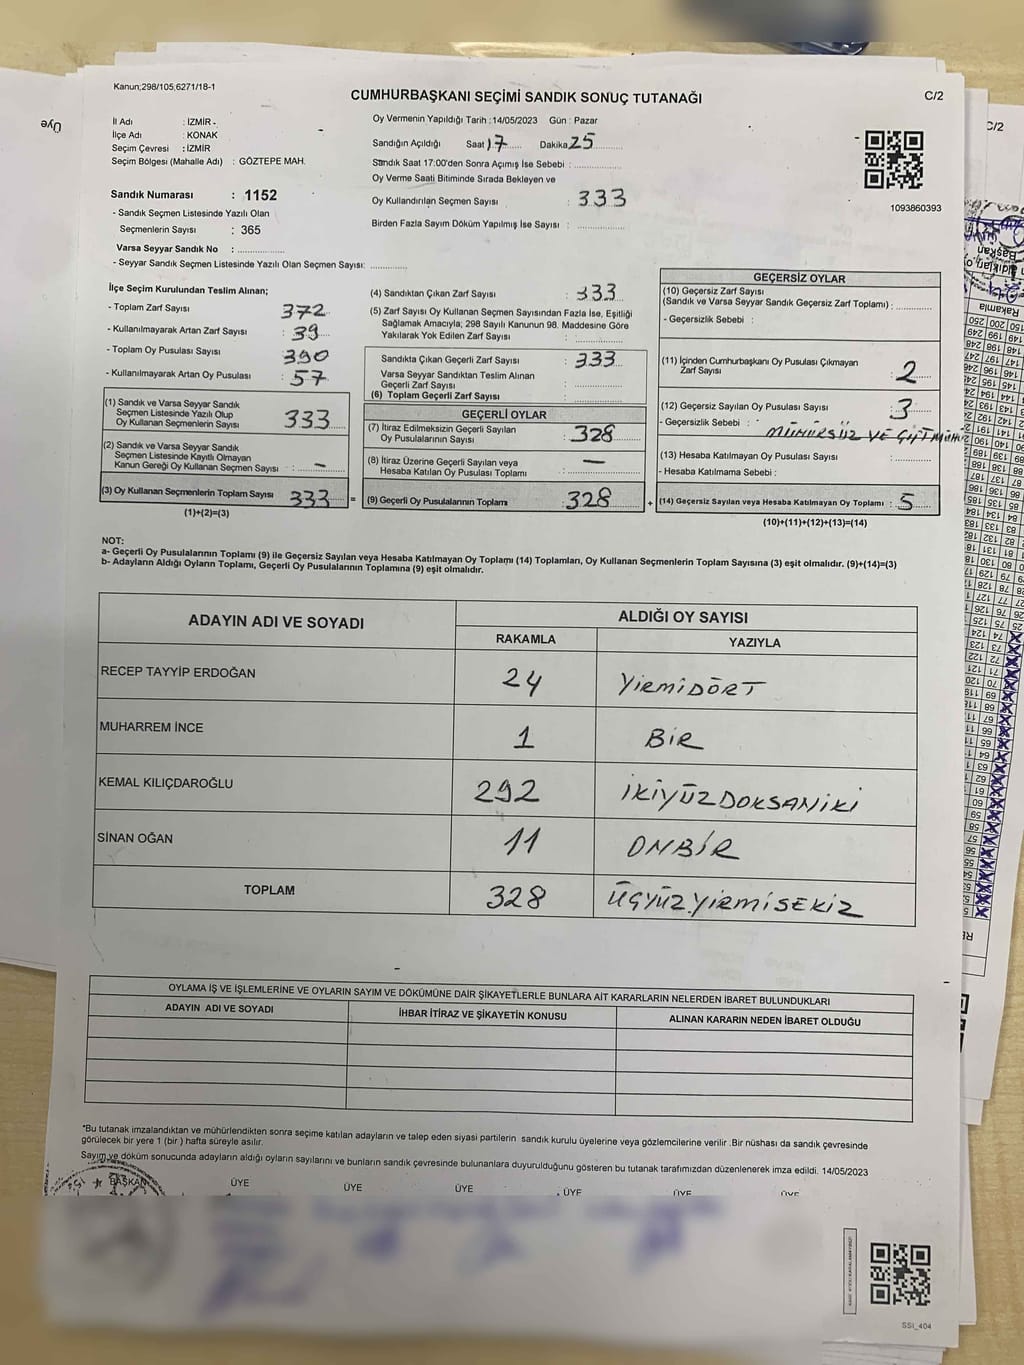 Kanun;298/105,6271/18-1
CUMHURBAŞKANI SEÇİMİ SANDIK SONUÇ TUTANAĞI
C/2
İl Adı : İZMİR -
İlçe Adı : KONAK
Seçim Çevresi : İZMİR
Seçim Bölgesi (Mahalle Adı) : GÖZTEPE MAH.
Sandık Numarası : 1152
- Sandık Seçmen Listesinde Yazılı Olan
Seçmenlerin Sayısı : 365
Varsa Seyyar Sandık No : ..............
- Seyyar Sandık Seçmen Listesinde Yazılı Olan Seçmen Sayısı: ............
Oy Vermenin Yapıldığı Tarih :14/05/2023 Gün : Pazar
Sandığın Açıldığı Saat 17 Dakika 25
Sandık Saat 17:00'den Sonra Açımış İse Sebebi : ..............
Oy Verme Saati Bitiminde Sırada Bekleyen ve
Oy Kullandırılan Seçmen Sayısı : 333
Birden Fazla Sayım Döküm Yapılmış İse Sayısı : ..............
1093860393
İlçe Seçim Kurulundan Teslim Alınan;
- Toplam Zarf Sayısı : 372
- Kullanılmayarak Artan Zarf Sayısı : 39
- Toplam Oy Pusulası Sayısı : 390
- Kullanılmayarak Artan Oy Pusulası : 57
(1) Sandık ve Varsa Seyyar Sandık
Seçmen Listesinde Yazılı Olup
Oy Kullanan Seçmenlerin Sayısı : 333
(2) Sandık ve Varsa Seyyar Sandık
Seçmen Listesinde Kayıtlı Olmayan
Kanun Gereği Oy Kullanan Seçmen Sayısı : –
(3) Oy Kullanan Seçmenlerin Toplam Sayısı 333 =
(1)+(2)=(3)
(4) Sandıktan Çıkan Zarf Sayısı : 333
(5) Zarf Sayısı Oy Kullanan Seçmen Sayısından Fazla İse, Eşitliği
Sağlamak Amacıyla; 298 Sayılı Kanunun 98. Maddesine Göre
Yakılarak Yok Edilen Zarf Sayısı : ..............
Sandıkta Çıkan Geçerli Zarf Sayısı : 333
Varsa Seyyar Sandıktan Teslim Alınan
Geçerli Zarf Sayısı : ..............
(6) Toplam Geçerli Zarf Sayısı : ..............
GEÇERLİ OYLAR
(7) İtiraz Edilmeksizin Geçerli Sayılan
Oy Pusulalarının Sayısı : 328
(8) İtiraz Üzerine Geçerli Sayılan veya
Hesaba Katılan Oy Pusulası Toplamı : –
(9) Geçerli Oy Pusulalarının Toplamı : 328 +
GEÇERSİZ OYLAR
(10) Geçersiz Zarf Sayısı
(Sandık ve Varsa Seyyar Sandık Geçersiz Zarf Toplamı) : ..............
- Geçersizlik Sebebi :
(11) İçinden Cumhurbaşkanı Oy Pusulası Çıkmayan
Zarf Sayısı : 2
(12) Geçersiz Sayılan Oy Pusulası Sayısı : 3
- Geçersizlik Sebebi : MÜHÜRSÜZ VE ÇİFT MÜHÜ
(13) Hesaba Katılmayan Oy Pusulası Sayısı : ..............
- Hesaba Katılmama Sebebi :
(14) Geçersiz Sayılan veya Hesaba Katılmayan Oy Toplamı : 5
(10)+(11)+(12)+(13)=(14)
NOT:
a- Geçerli Oy Pusulalarının Toplamı (9) ile Geçersiz Sayılan veya Hesaba Katılmayan Oy Toplamı (14) Toplamları, Oy Kullanan Seçmenlerin Toplam Sayısına (3) eşit olmalıdır. (9)+(14)=(3)
b- Adayların Aldığı Oyların Toplamı, Geçerli Oy Pusulalarının Toplamına (9) eşit olmalıdır.
ADAYIN ADI VE SOYADI ALDIĞI OY SAYISI
RAKAMLA YAZIYLA
RECEP TAYYİP ERDOĞAN 24 YİRMİDÖRT
MUHARREM İNCE 1 BİR
KEMAL KILIÇDAROĞLU 292 İKİYÜZDOKSANİKİ
SİNAN OĞAN 11 ONBİR
TOPLAM 328 ÜÇYÜZYİRMİSEKİZ
OYLAMA İŞ VE İŞLEMLERİNE VE OYLARIN SAYIM VE DÖKÜMÜNE DAİR ŞİKAYETLERLE BUNLARA AİT KARARLARIN NELERDEN İBARET BULUNDUKLARI
ADAYIN ADI VE SOYADI İHBAR İTİRAZ VE ŞİKAYETİN KONUSU ALINAN KARARIN NEDEN İBARET OLDUĞU
*Bu tutanak imzalandıktan ve mühürlendikten sonra seçime katılan adayların ve talep eden siyasi partilerin sandık kurulu üyelerine veya gözlemcilerine verilir .Bir nüshası da sandık çevresinde
görülecek bir yere 1 (bir ) hafta süreyle asılır.
Sayım ve döküm sonucunda adayların aldığı oyların sayılarını ve bunların sandık çevresinde bulunanlara duyurulduğunu gösteren bu tutanak tarafımızdan düzenlenerek imza edildi. 14/05/2023
BAŞKAN ÜYE ÜYE ÜYE ÜYE ÜYE ÜYE
SSI_404
Üye
C/2
Başkan
Rakamla